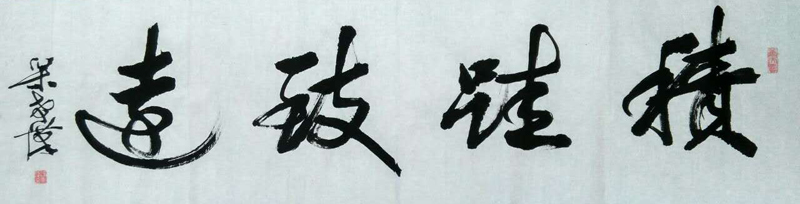 積跬致遠